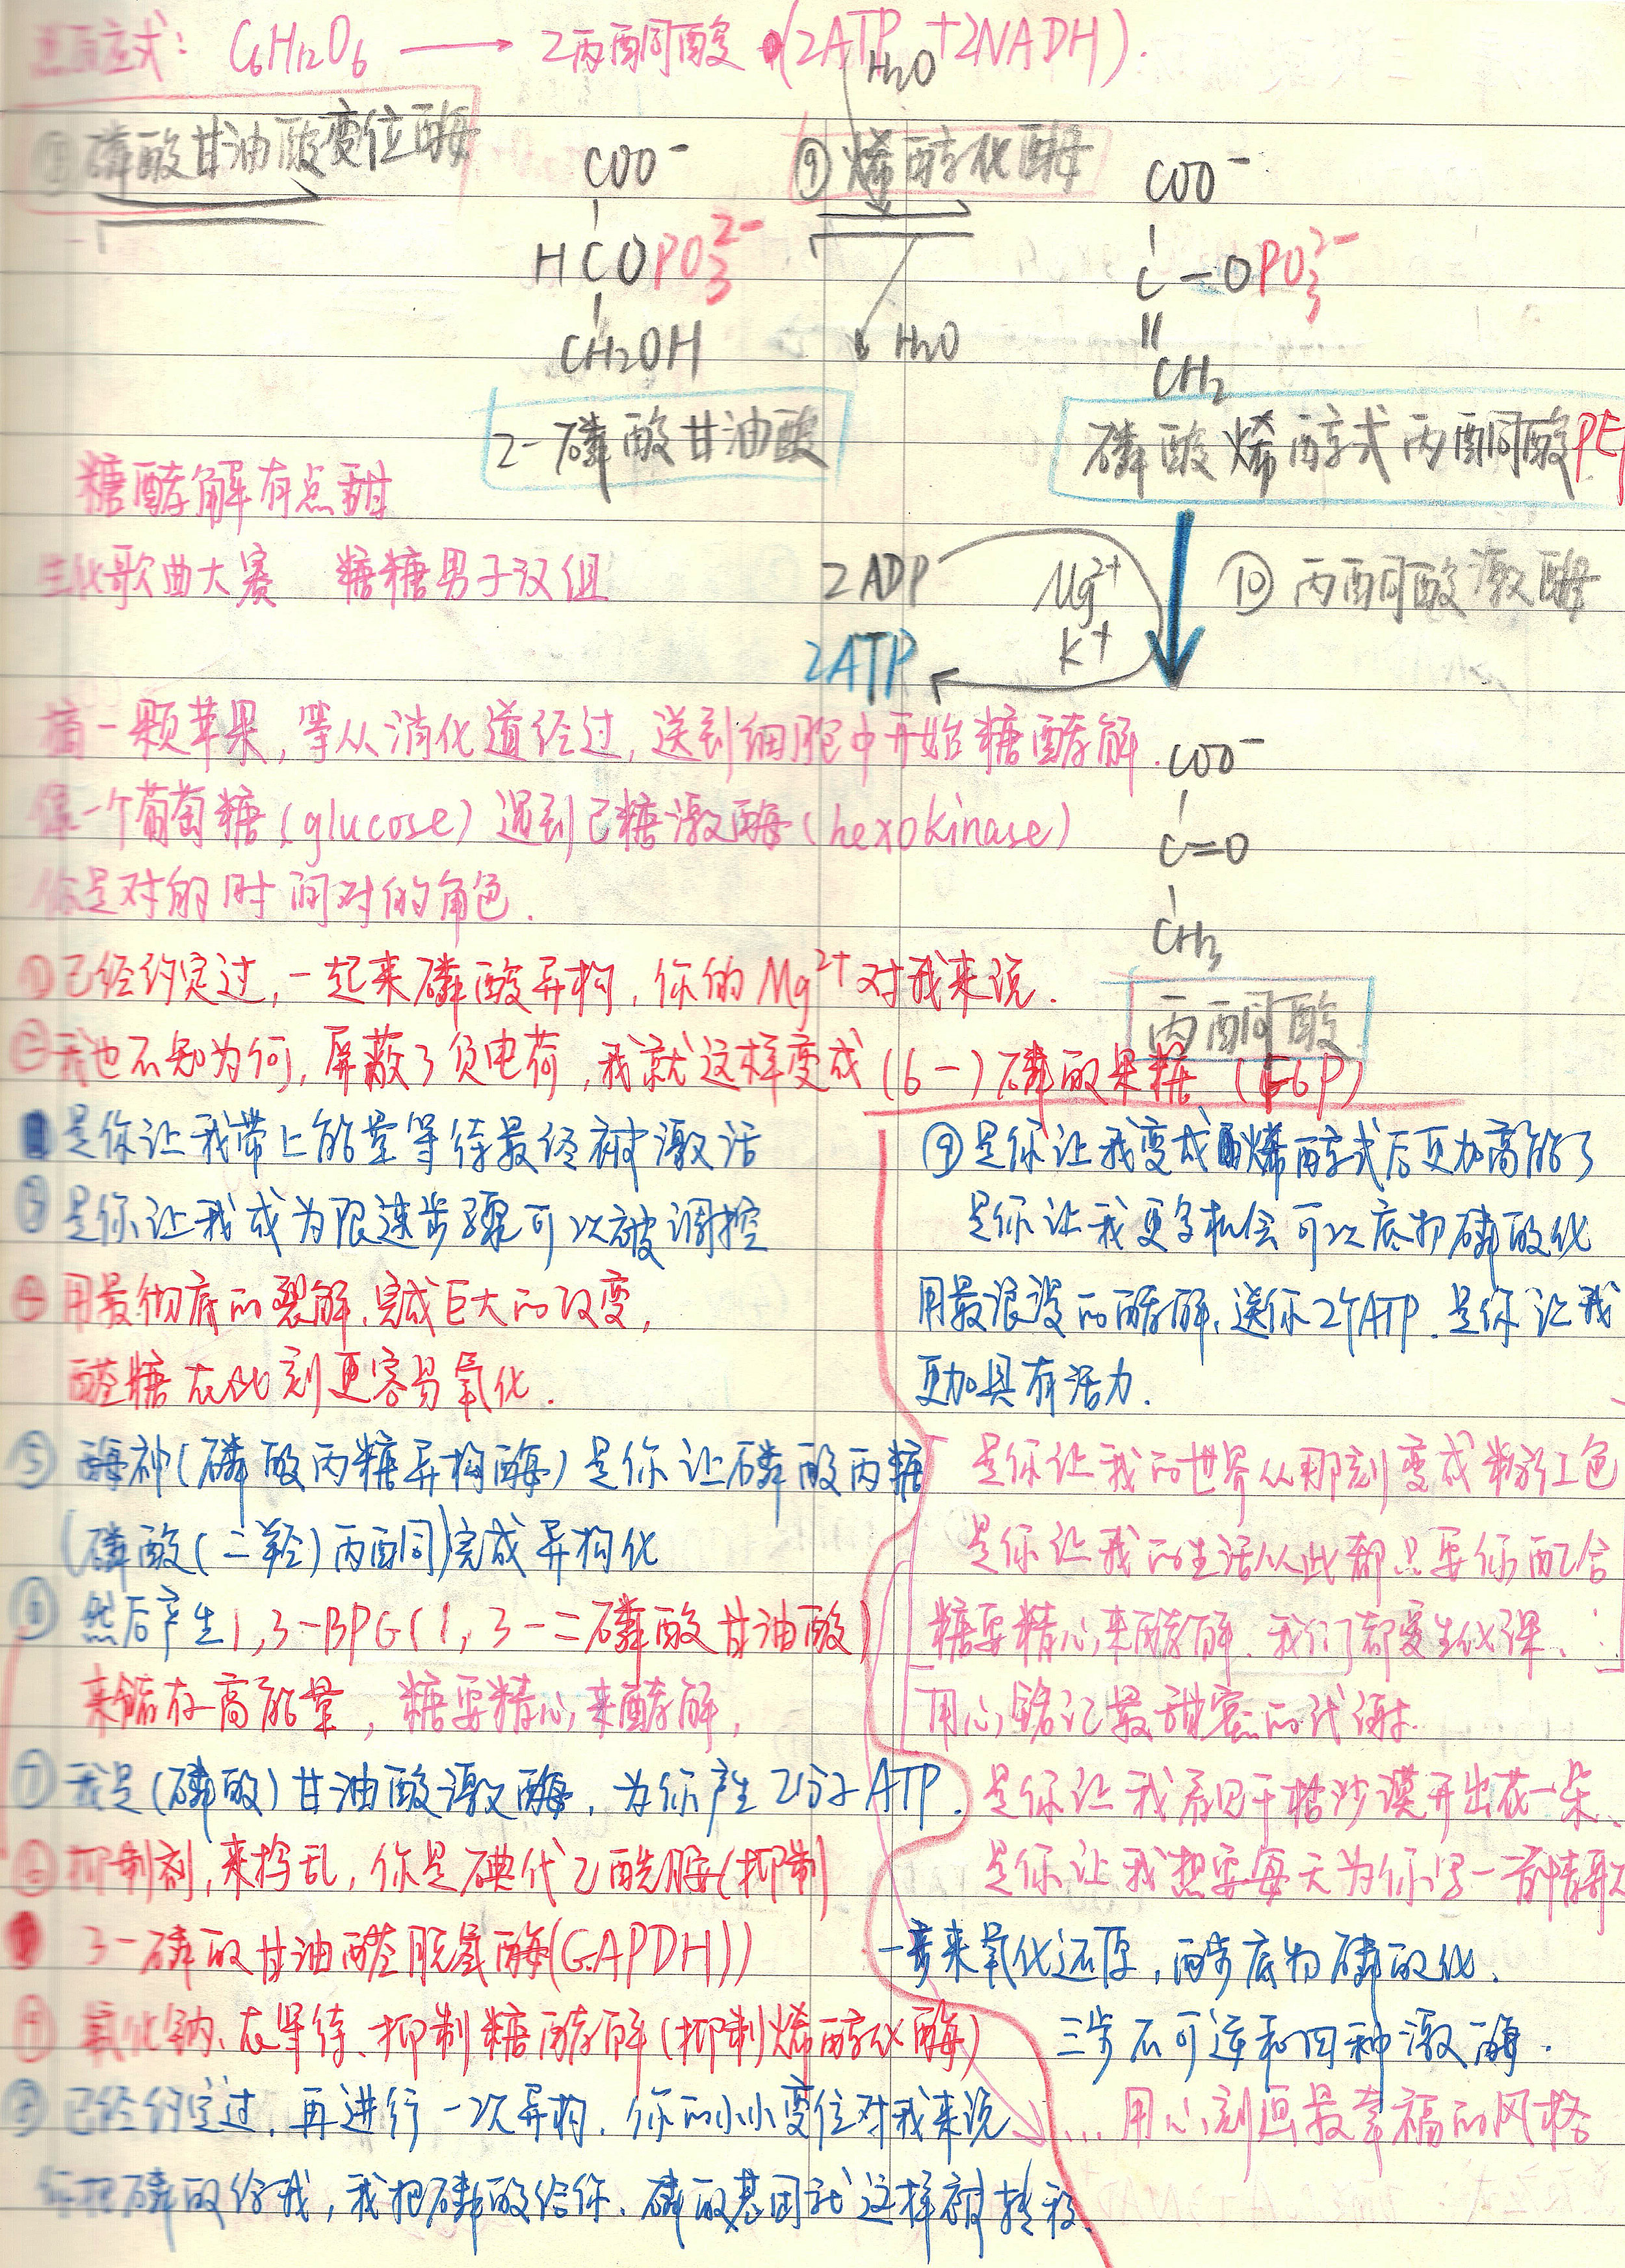 总反应式: C6H12O6 → 2丙酮酸 (2ATP+2NADH).
H2O
⑧磷酸甘油酸变位酶
⑨烯醇化酶
COO⁻
HCOPO₃²⁻
CH2OH
2-磷酸甘油酸
H2O
COO⁻
C-OPO₃²⁻
CH2
磷酸烯醇式丙酮酸PEP
糖酵解有点甜
生化歌曲大赛 糖糖男子汉组
2ADP
Mg²⁺
K⁺
2ATP
⑩丙酮酸激酶
COO⁻
C=O
CH3
丙酮酸
摘一颗苹果,等从消化道经过,送到细胞中开始糖酵解.
像一个葡萄糖(glucose)遇到己糖激酶(hexokinase)
你是对的时间对的角色.
①已经约定过,一起来磷酸异构,你的Mg²⁺对我来说.
②我也不知为何,屏蔽了负电荷,我就这样变成(6-)磷酸果糖(F6P)
是你让我带上能量等待最终被激活
③是你让我成为限速步骤可以被调控
④用最彻底的裂解,完成巨大的改变,
醛糖在此刻更容易氧化.
⑤酶神(磷酸丙糖异构酶)是你让磷酸丙糖
(磷酸(二羟)丙酮)完成异构化
⑥然后产生1,3-BPG(1,3-二磷酸甘油酸)
来储存高能量,糖要精心来酵解,
⑦我是(磷酸)甘油酸激酶,为你产生2分子ATP.
⑥抑制剂,来捣乱,你是碘代乙酰胺(抑制
3-磷酸甘油醛脱氢酶(GAPDH))
⑨氟化钠,在等待,抑制糖酵解(抑制烯醇化酶)
⑧已经约定过,再进行一次异构,你的小小变位对我来说
你把磷酸给我,我把磷酸给你,磷酸基团就这样被转移.
⑨是你让我变成烯醇式后更加高能了
是你让我更多机会可以底物磷酸化
用最浪漫的酵解,送你2个ATP.是你让我
更加具有活力.
是你让我的世界从那刻变成粉红色
是你让我的生活从此都只要你配合
糖要精心来酵解.我们都爱生化课.
用心铭记最甜蜜的代谢.
是你让我看见干枯沙漠开出花一朵.
是你让我想要每天为你写一首情歌
一步来氧化还原,两步底物磷酸化.
三步不可逆和四种激酶.
...用心刻画最幸福的风格